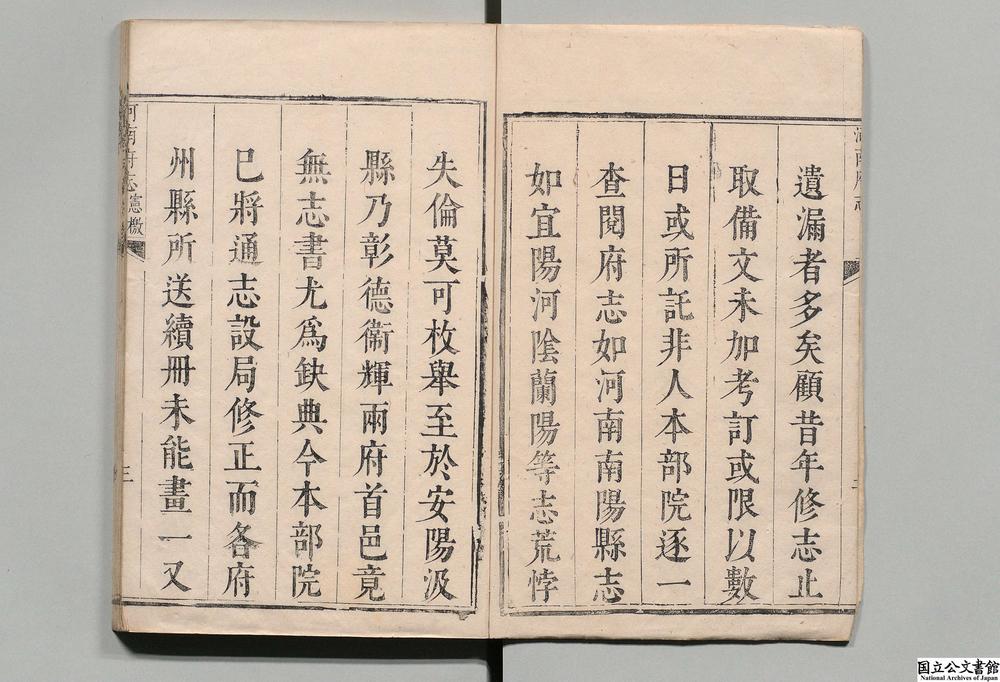 遺漏者多矣顧昔年修志止
取備文未加考訂或限以數
日或所託非人本部院逐一
查閱府志如河南南陽縣志
如宜陽河陰蘭陽等志荒悖
失倫莫可枚舉至於安陽汲
縣乃彰德衞輝兩府首邑竟
無志書尤爲缺典今本部院
已將通志設局修正而各府
州縣所送續冊未能畫一又
河南府志
憲檄
三
国立公文書館
National Archives of Japan